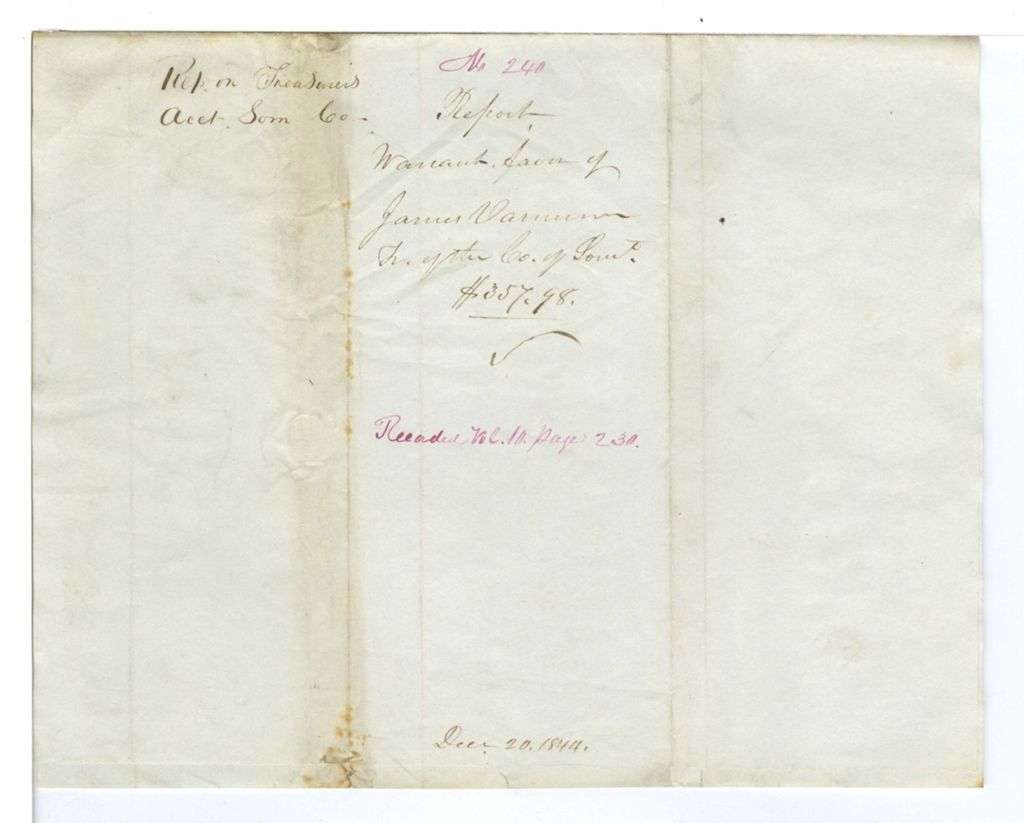 Rep. on Treasurers
Acct. Som Co -
No 240
Report
Warrant favor of
James Varnum
Tr. of the Co. of Somt.
$357.98.
Recorded Vol. 10. page 230.
Decr 20. 1844.